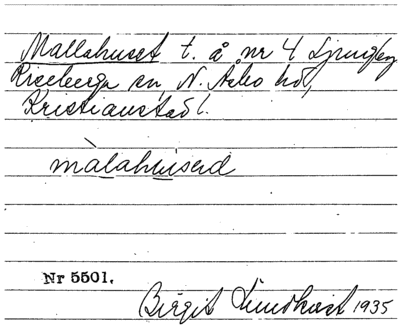 Mallahuset t. å nr 4 Ljungby
Riseberga sn, N. Åsbo hd,
Kristianstad l.
màlahùsed
Nr 5501.
Birgit Lundkvist 1935